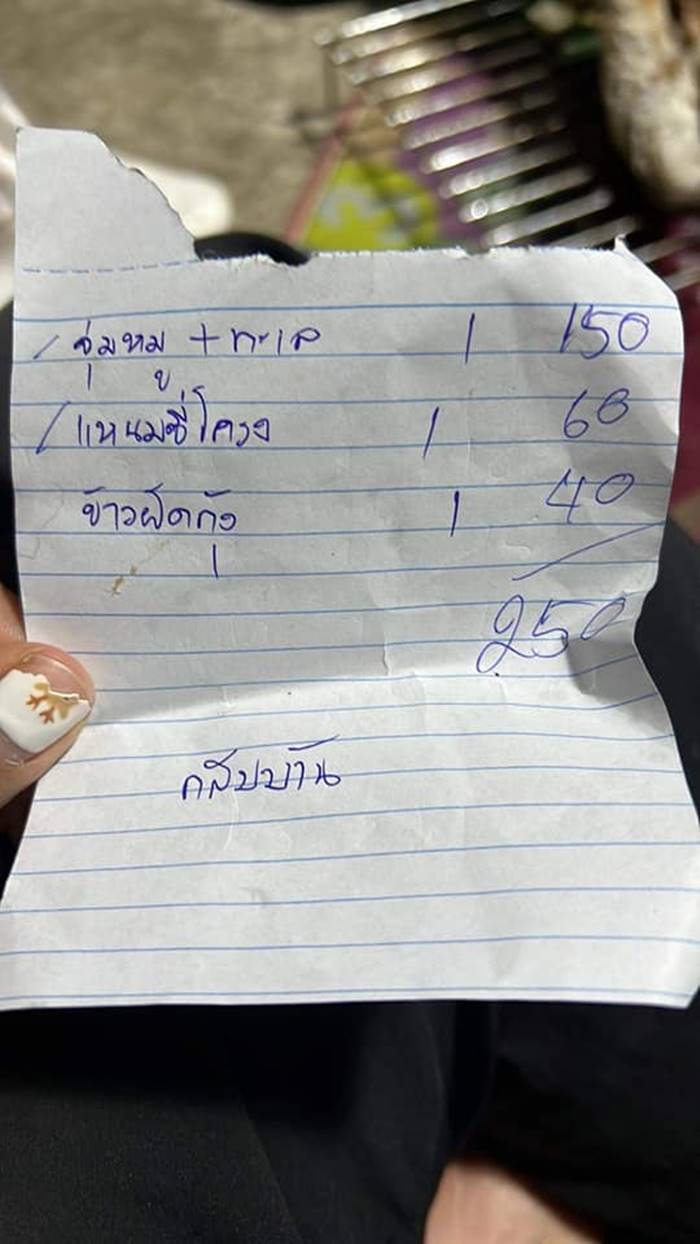 / จุ่มหมู + ทะเล 1 150
/ แหนมซี่โครง 1 60
ข้าวผัดกุ้ง 1 40
250
กลับบ้าน